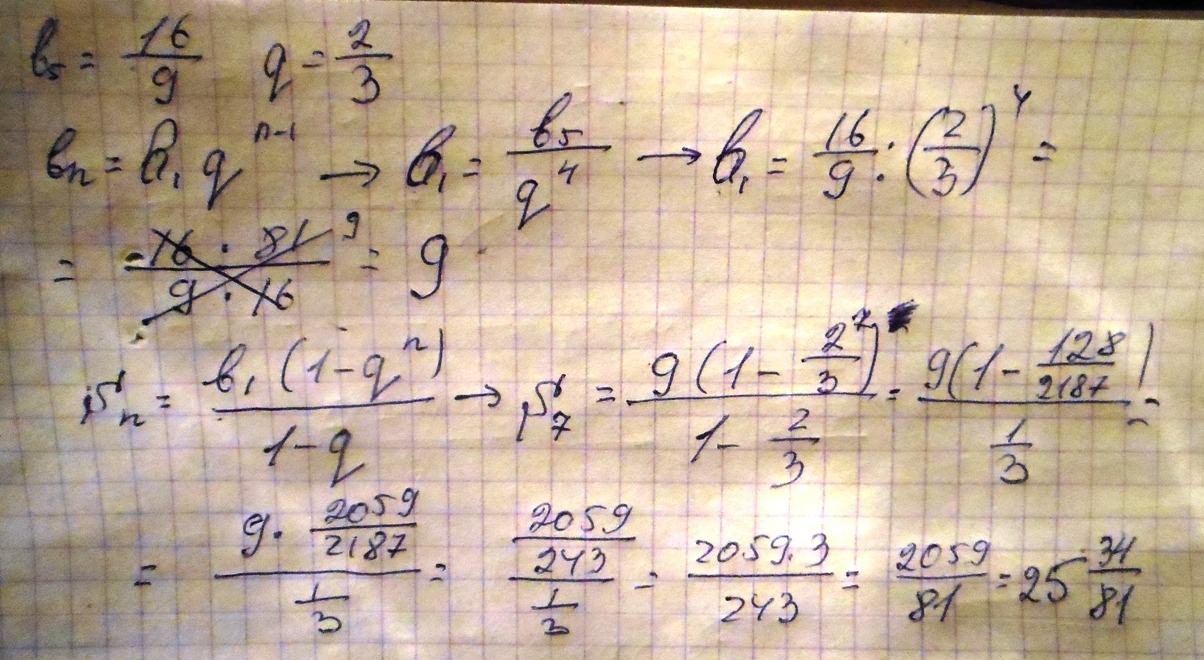 b₅ = 16/9 q = 2/3
bₙ = b₁ qⁿ⁻¹ → b₁ = b₅/q⁴ → b₁ = 16/9 : (2/3)⁴ =
= 16 · 81 9/9 · 16 = 9
Sₙ = b₁ (1-qⁿ)/1-q → S₇ = 9(1 - 2⁷/3)/1 - 2/3 = 9(1 - 128/2187)/1/3 =
= 9 · 2059/2187/1/3 = 2059/243/1/3 = 2059.3/243 = 2059/81 = 25 34/81